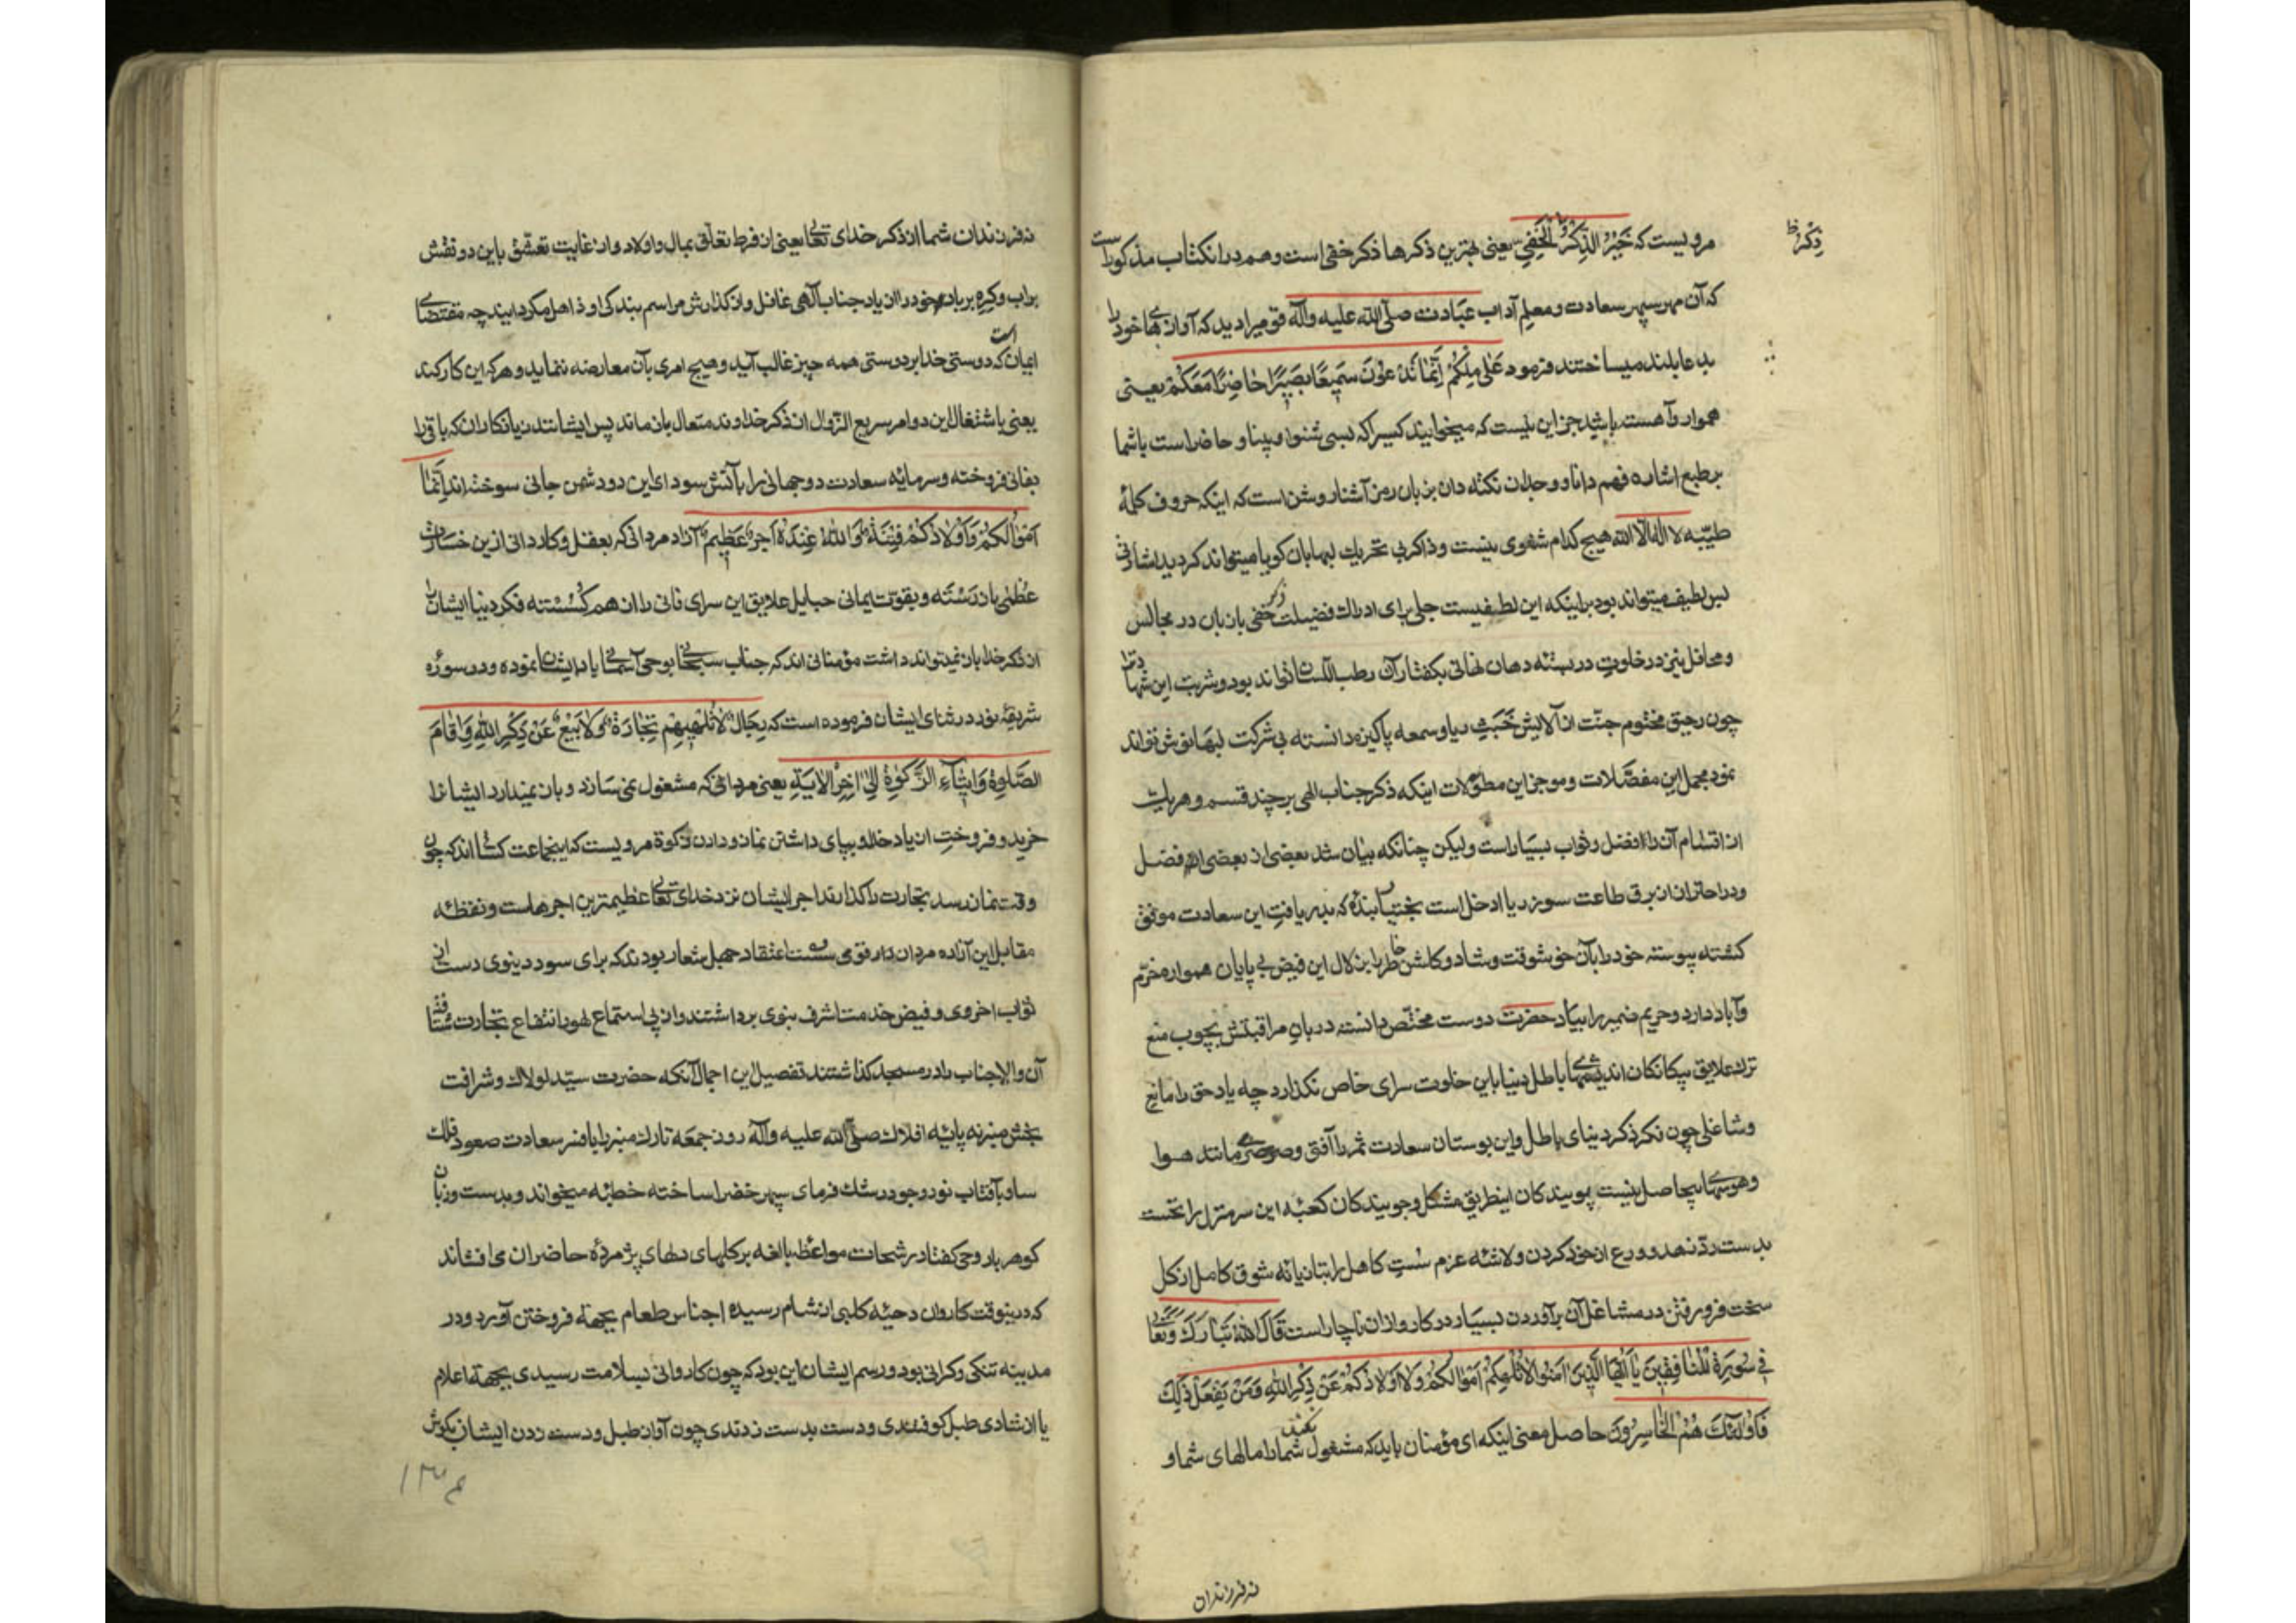 ذکر ظ
مرویست که خَیْرُ الذِّکْرُ الْخَفِی یعنی بهترین ذکرها ذکر خفی است وهم درانکتاب مذکور است
که آن مهر سپهر سعادت و معلم آداب عبادت صلّی الله علیه وآله قومیرا دید که آوازهای خود را
بدعا بلند میساختند فرمود عَلٰی اِنَّمَا تَدْعُونَ سَمِیعًا بَصِیرًا حَاضِرًا مَعَکُمْ یعنی
هموار وآهسته باشید جز این نیست که میخوانید کسیرا که بسی شنوا و بینا و حاضر است باشما
بر طبع اشاره فهم دانا و وجدان نکته دان بزبان رمز آشنا روشن است که اینکه حروف کلمهٔ
طیّبه لا اله الّا الله هیچ کدام شفوی نیست وذاکر بی تحریک لبها بان کویا میتواند کردید اشارتی
بس لطیف میتواند بود براینکه این لطفیست جلی برای ادراک فضیلت ذکر خفی بازبان در مجالس
ومحافل نیز در خلوت در بسته دهان نهانی بکفتار آن رطب اللسان تواند بود وشربت این
چون رحیق مختوم جنّت از آلایش خَبَثِ ریا وسمعه پاکیزه دانسته بی شرکت لبها نوش تواند
نمود مجمل این مفصّلات وموجز این مطوّلات اینکه ذکر جناب الهی بر چند قسم وهریک
از اقسام آن را فضل وثواب بسیار است ولیکن چنانکه بیان شد بعضی از بعضی افضل
ودر احتراز از برق طاعت سوز ریا ادخل است بندهٔ که بدریافت این سعادت موفق
کشته پیوسته خود را بآن خوشوقت وشاد وکلشن خاطر را بزلال این فیض بی پایان همواره خرّم
وآباد دارد وحریم ضمیر را بیاد حضرت دوست مختصّ دانسته دربان مراقبتش بچوب منع
ترک علایق بیکانکان اندیشهای باطل دنیا باین خلوت سرای خاص نکذارد چه یاد حق را مانع
وشاغلی چون فکر دنیای باطل واین بوستان سعادت ثمر را آفتی وصرصری مانند هوا
وهوسهای بیحاصل نیست پویندکان اینطریق مشکل وجویندکان کعبهٔ این سرمنزل را نخست
بدست ردّ از خود کردن ولاشهٔ عزم سُستِ کاهل را بتازیانهٔ شوق کامل از کل
سخت فرو رفتن در مشاغل آن برآوردن بسیار در کار وازان ناچار است قَالَ اللهُ تَبَارَکَ وَتَعَالٰی
فِی سُورَةِ الْمُنَافِقِینَ یَا اَیُّهَا الَّذِینَ اٰمَنُوا لَا تُلْهِکُمْ اَمْوَالُکُمْ وَلَا اَوْلَادُکُمْ عَنْ ذِکْرِ اللهِ وَمَنْ یَفْعَلْ ذٰلِکَ
فَاُولٰئِکَ هُمُ الْخَاسِرُونَ حاصل معنی اینکه ای مؤمنان باید که مشغول نکند شمارا مالهای شما و
نه فرزندان
نه فرزندان شما از ذکر خدای تعالی یعنی از فرط تعلّق بمال واولاد واز غایت تعشّق باین دو نقش
براب وکرهِ برباد خود را از یاد جناب آلهی غافل واز کذارش مراسم بندکی او ذاهل مکردانید چه مقتضای
ایمان است که دوستی خدا بر دوستی همه چیز غالب آید وهیچ امری بآن معارضه ننماید وهر که این کار کند
یعنی باشتغال این دو امر سریع الزّوال از ذکر خداوند متعال باز ماند پس ایشانند زیانکاران که باقی را
بفانی فروخته وسرمایه سعادت دوجهانی را بآتش سودای این دو دشمن جانی سوخته اند اِنَّمَا
اَمْوَالُکُمْ وَاَوْلَادُکُمْ فِتْنَةٌ وَاللهُ عِنْدَهُ اَجْرٌ عَظِیمٌ آزاد مردانی که بعقل وکاردانی ازین خسارت
عُظمٰی باز رَسْته وبقوت ایمانی حبایل علایق این سرای فانی را از هم کُسَسْته فکر دنیا ایشان را
از ذکر خدا باز نمیتواند داشت مؤمنانی اند که جناب سبحانی بوحی آسمانی یاد ایشان نموده ودر سورهٔ
شریفهٔ نور در ثنای ایشان فرموده است که رِجَالٌ لَا تُلْهِیهِمْ تِجَارَةٌ وَلَا بَیْعٌ عَنْ ذِکْرِ اللهِ وَاِقَامَ
الصَّلٰوةِ وَاِیتَآءِ الزَّکٰوةِ اِلٰی اٰخِرِ الْاٰیَةِ یعنی مردانی که مشغول نمی سازد وباز نمیدارد ایشانرا
خرید وفروخت از یاد خدا وبپای داشتن نماز ودادن زکوة مرویست که اینجماعت کسانی اند که چون
وقت نماز رسد تجارت را کذارند اجر ایشان نزد خدای تعالی عظیمترین اجرهاست
مقابل این آزاده مردان قومی سست اعتقاد جهل شعار بودند که برای سود دنیوی دست از
ثواب اخروی وفیض خدمت اشرف نبوی برداشتند واز پی استماع لهو یا انتفاع تجارت شتافته
آن والاجناب را در مسجد کذاشتند تفصیل این اجمال آنکه حضرت سیّد لولاک وشرافت
بخش منبر نه پایهٔ افلاک صلّی الله علیه وآله روز جمعه تارک منبر را بافسر سعادت صعود فلک
سا وبآفتاب نور وجود رشک فرمای سپهر خضرا ساخته خطبه میخواند وبدست وزبان
کوهر بار وحی کفتار رشحات مواعظ بالغه بر کلهای دلهای پژمردهٔ حاضران می افشاند
که درینوقت کاروان دحیهٔ کلبی از شام رسیده اجناس طعام بجهة فروختن آورد ودر
مدینه تنکی وکرانی بود ورسم ایشان این بود که چون کاروانی بسلامت رسیدی بجهة اعلام
یا از شادی طبل کوفتندی ودست بدست زدندی چون آواز طبل ودست زدن ایشان بکوش